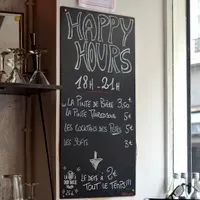 HAPPY
HOURS
18H - 21H
LA PINTE DE BIÈRE 3,50€
LA PINTE
5€
LES COCKTAILS DES FILLES 5€
LES SHOTS 3€
LE DEMI À 2€
TOUT LE TEMPS !!!